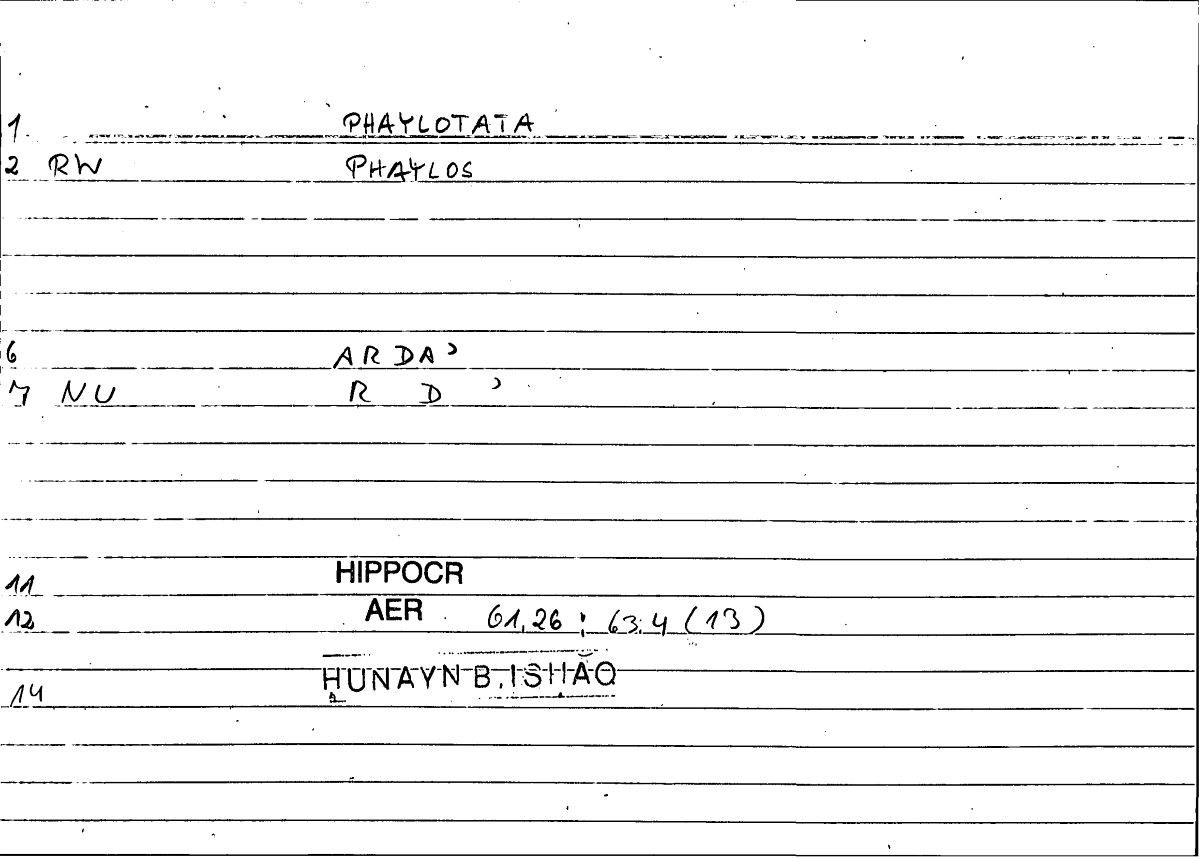 1 PHAYLOTATA
2 RW PHAYLOS
6 ARDAʾ
7 NU R D ʾ
11 HIPPOCR
12 AER 61,26 ; 63,4 (13)
14 ḤUNAYN B. ISḤĀQ